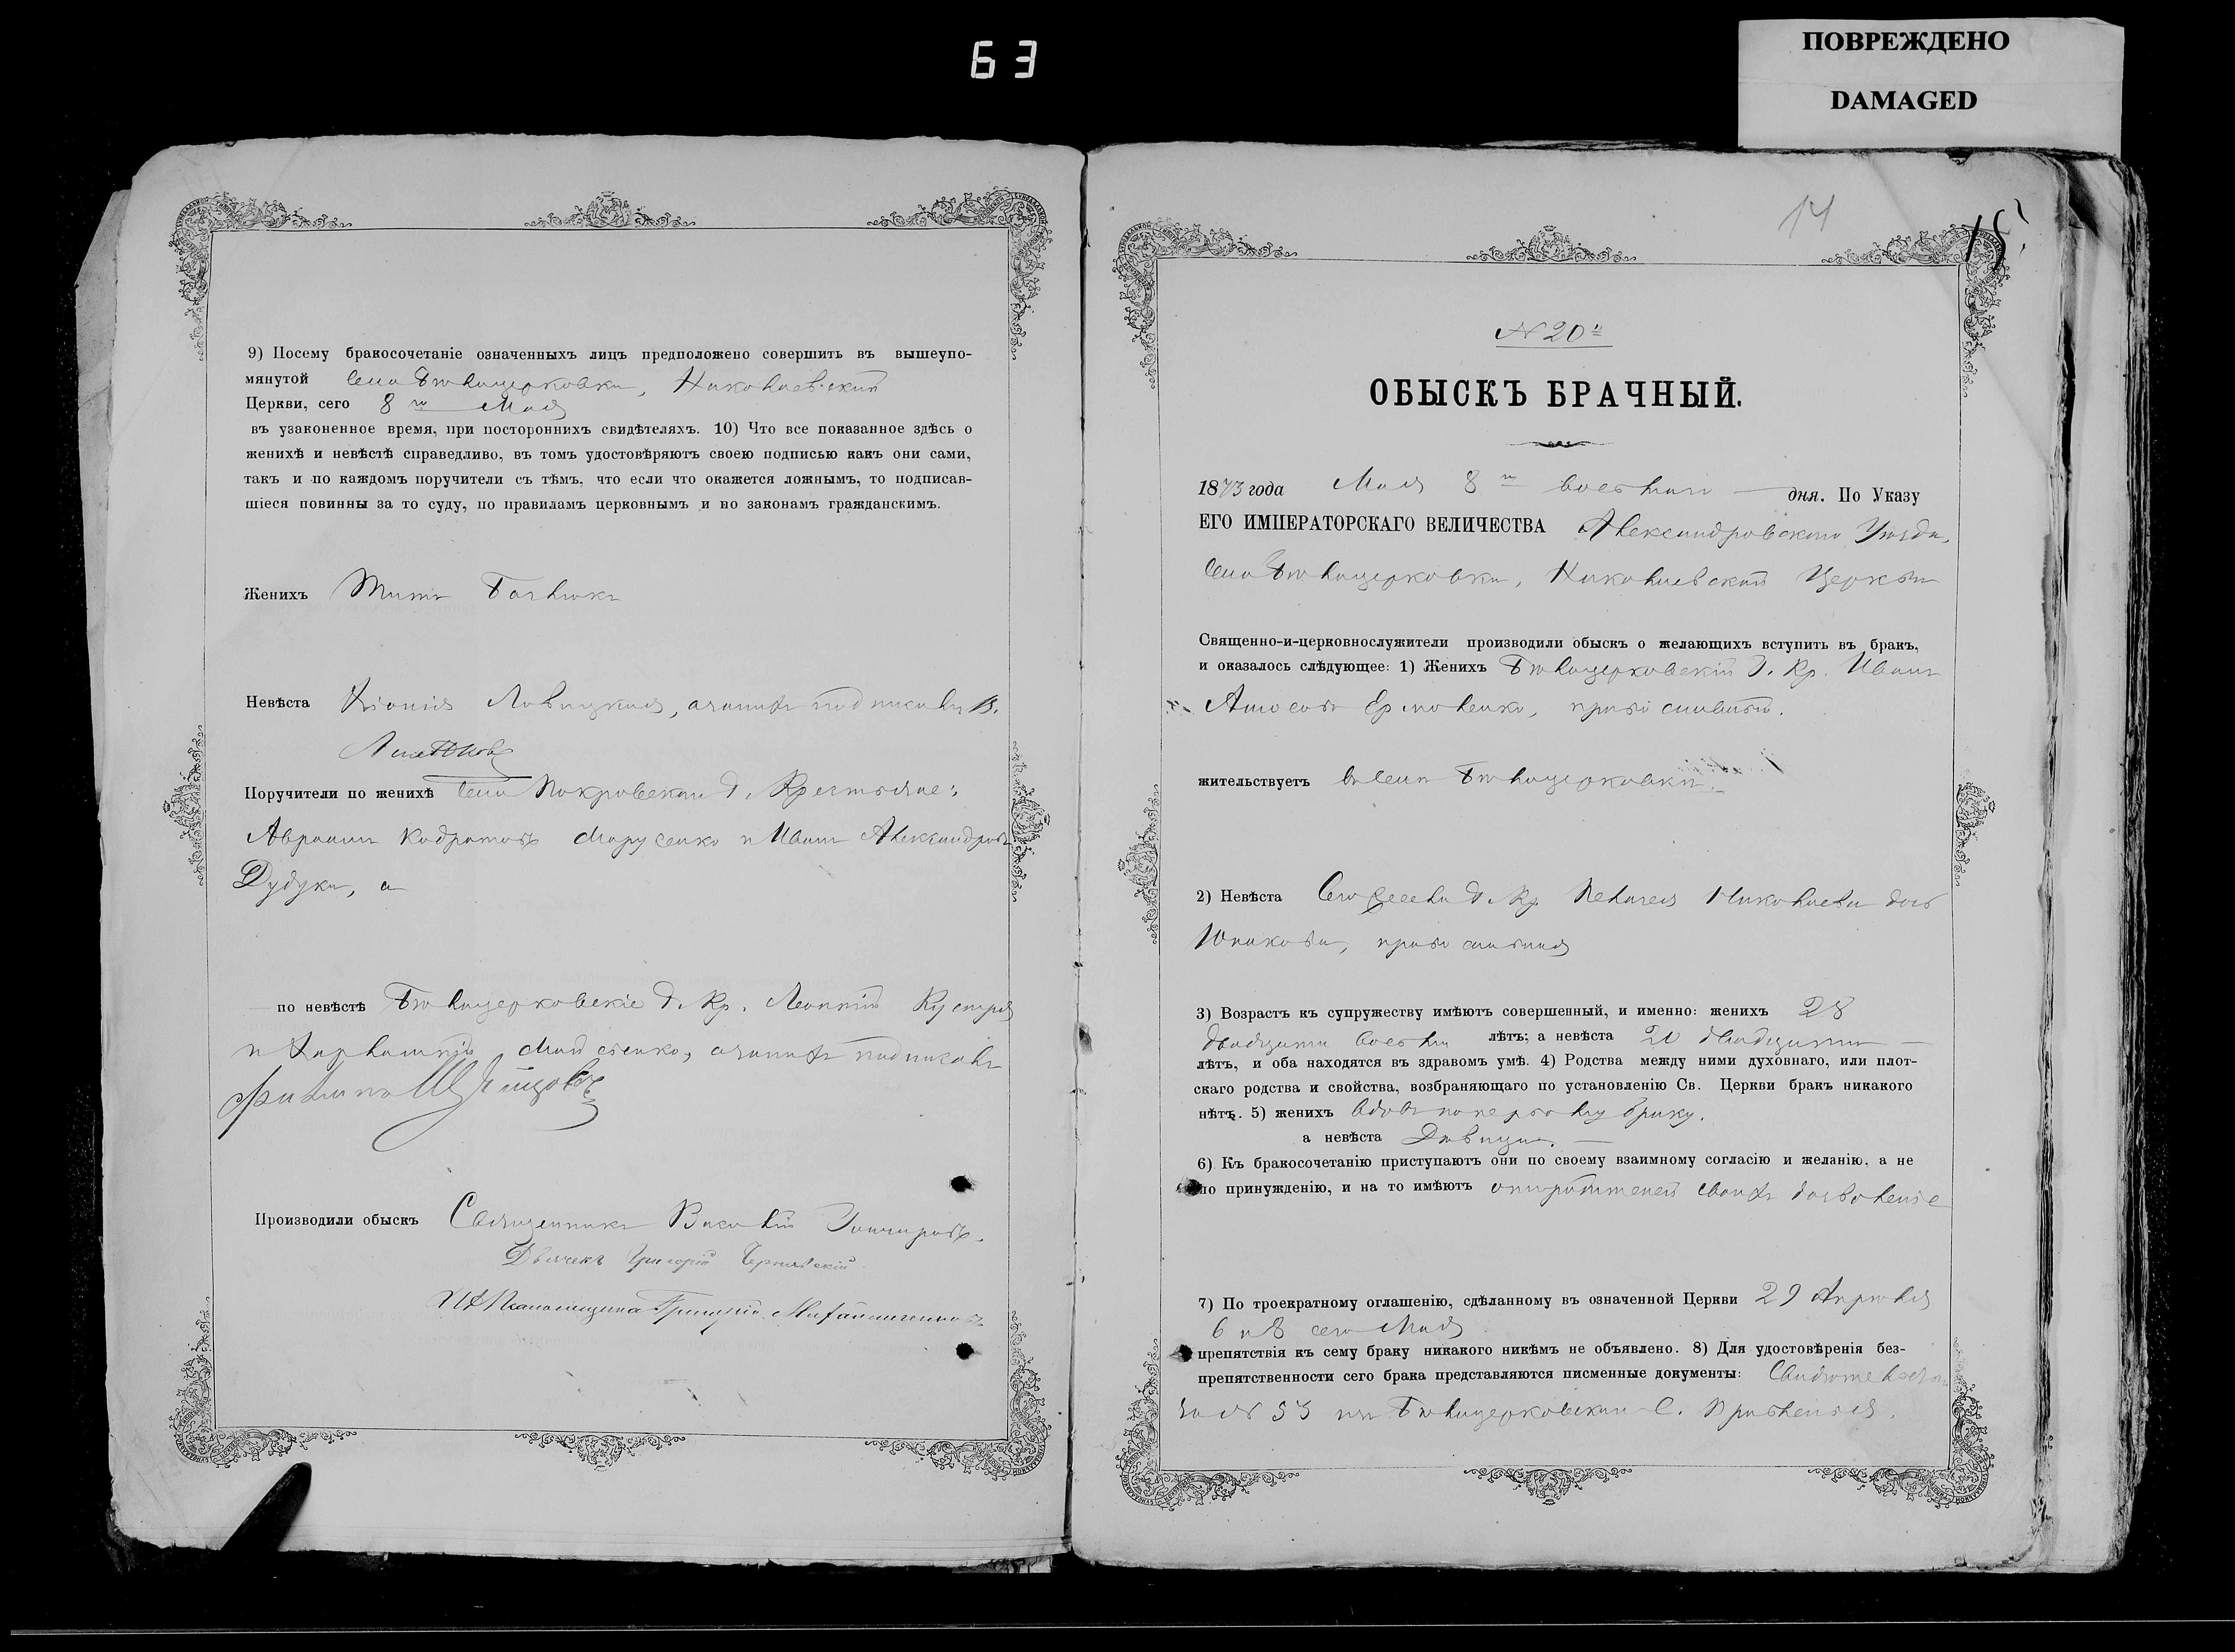 63
ПОВРЕЖДЕНО
DAMAGED
9) Посему бракосочетаніе означенныхъ лицъ предположено совершить въ вышеупо-
мянутой Села Бѣлоцерковки, Николаевской
Церкви, сего 8го Мая
въ узаконенное время, при постороннихъ свидѣтеляхъ. 10) Что все показанное здѣсь о
женихѣ и невѣстѣ справедливо, въ томъ удостовѣряютъ своею подписью какъ они сами,
такъ и по каждомъ поручители съ тѣмъ, что если что окажется ложнымъ, то подписав-
шіеся повинны за то суду, по правиламъ церковнымъ и по законамъ гражданскимъ.
Женихъ Титъ
Невѣста Хіонія Ловицкая, а за нихъ подписался В.
Поручители по женихѣ Села Покровскаго г. Крестьяне:
Авраамъ Кодратовъ Марусенко и Иванъ Александровъ
Дудука, а
по невѣстѣ Бѣлоцерковскіе г. Кр. Леонтій
и Харлампій а за нихъ подписался
Филиппъ
Производили обыскъ Священникъ Василій Гончаровъ.
Дьячекъ Григорій Чернявскій
Григорій
14
15
№ 20й
ОБЫСКЪ БРАЧНЫЙ.
1873 года Мая 8го восьмаго дня. По Указу
ЕГО ИМПЕРАТОРСКАГО ВЕЛИЧЕСТВА Александровскаго Уѣзда,
Села Бѣлоцерковки, Николаевской Церкви
Священно-и-церковнослужители производили обыскъ о желающихъ вступить въ бракъ,
и оказалось слѣдующее: 1) Женихъ Бѣлоцерковскій г. Кр. Иванъ
Амосовъ Ермоленко, православный.
жительствуетъ въ Селѣ Бѣлоцерковкѣ.
2) Невѣста Сего села г. Кр. Пелагея Николаева дочь
Юнакова, православная
3) Возрастъ къ супружеству имѣютъ совершенный, и именно: женихъ 28
двадцать восемь лѣтъ; а невѣста 20 двадцати
лѣтъ, и оба находятся въ здравомъ умѣ. 4) Родства между ними духовнаго, или плот-
скаго родства и свойства, возбраняющаго по установленію Св. Церкви бракъ никакого
нѣтъ. 5) женихъ вдовъ по первому браку.
а невѣста Дѣвица.
6) Къ бракосочетанію приступаютъ они по своему взаимному согласію и желанію, а не
по принужденію, и на то имѣютъ отъ родителей своихъ дозволеніе
7) По троекратному оглашенію, сдѣланному въ означенной Церкви 29 Апрѣля
6 и 8 сего Мая
препятствія къ сему браку никакого никѣмъ не объявлено. 8) Для удостовѣренія без-
препятственности сего брака представляются писменные документы: Свидѣтельство
за № 53 изъ Бѣлоцерковскаго С. Правленія.